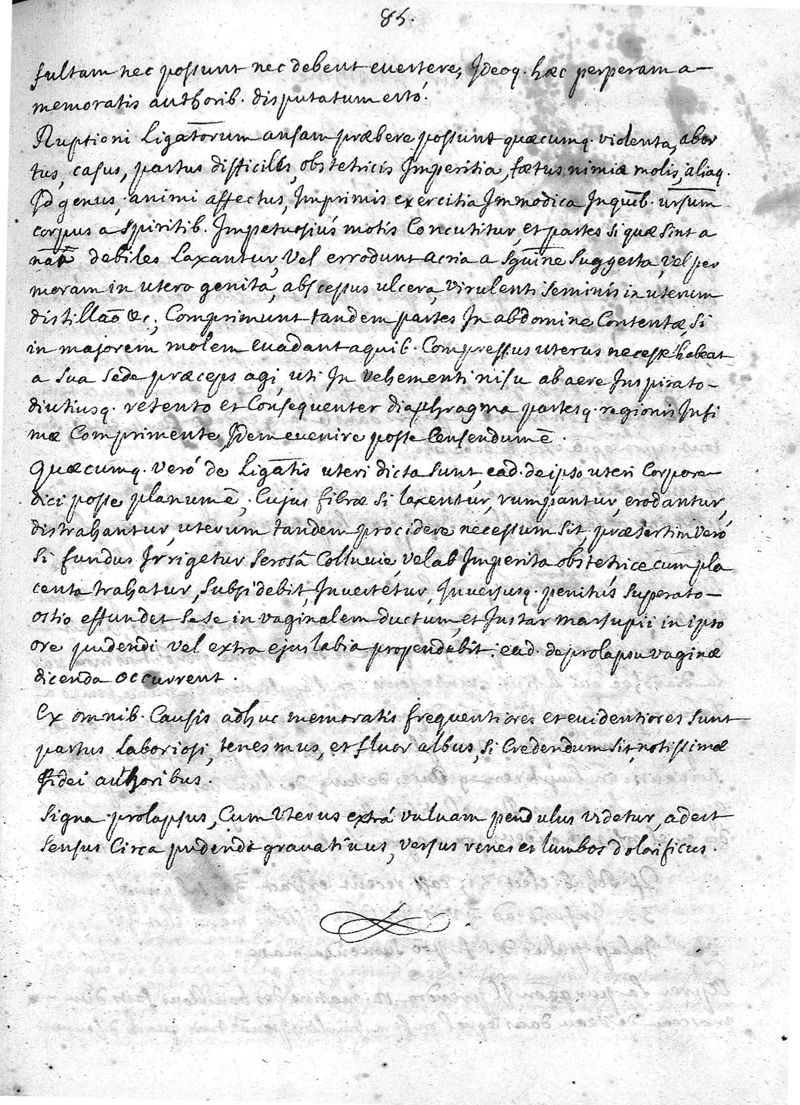 85.
fultam nec possunt nec debent evertere, Ideoq. hæc perperam a-
memoratis authorib. disputatum estó.
Ruptioni Ligatorum ansam præbere possunt quæcumq. violenta, abor
tus, casus, partus difficilis, obstetricis Imperitia, fœtus nimiæ molis, aliaq.
Id genus, animi affectus, Imprimis exercitia Immodica Inquib. ursum
corpus a spiritib. Impetuosius motis Concutitur, et partes si quæ sint a
natã debiles Laxantur, Vel errodunt acria a sguine Suggesta, vel per
moram in utero genita, abscessus ulcera, virulenti seminis in uterum
distillão &c; Comprimunt tandem partes In abdomine Contentæ, Si
in majorem molem evadant aquib. Compressus uterus necesse habeat
a Sua Sede præceps agi, uti In vehementi nisu ab aere Inspirato-
diutiusq. retento et Consequenter diaphragma partesq. regionis Infi
mæ Comprimente, Idem evenire posse Censendum ē.
Quæcumq. veró de Ligatis uteri dicta sunt, ead. de ipso uteri Corpore
dici posse planum ē, Cujus fibræ si laxentur, rumpantur, erodantur,
distrahantur, uterum tandem procidere necessum sit, præsertim veró
Si fundus Irrigetur Serosâ Colluvie, vel ab Imperita obstetrice cum pla
centa trahatur, Subsidebit, Invertetur, Inversusq. penitùs Superato-
ostio effundet Sese in vaginalem ductum, et Instar marsupii in ipso
ore pudendi vel extra ejus labia propendebit: ead. de prolapsu vaginæ
dicenda occurrent.
Ex omnib. Causis adhuc memoratis frequentiores et evidentiores Sunt
partus Laboriosi, tenesmus, et fluor albus, Si Credendum Sit notissimæ
fidei authoribus.
Signa prolapsus, Cum Vterus extrá vulvam pendulus videtur, adest
Sensus Circa pudenda gravativus, versus renes et lumbos dolorificus.